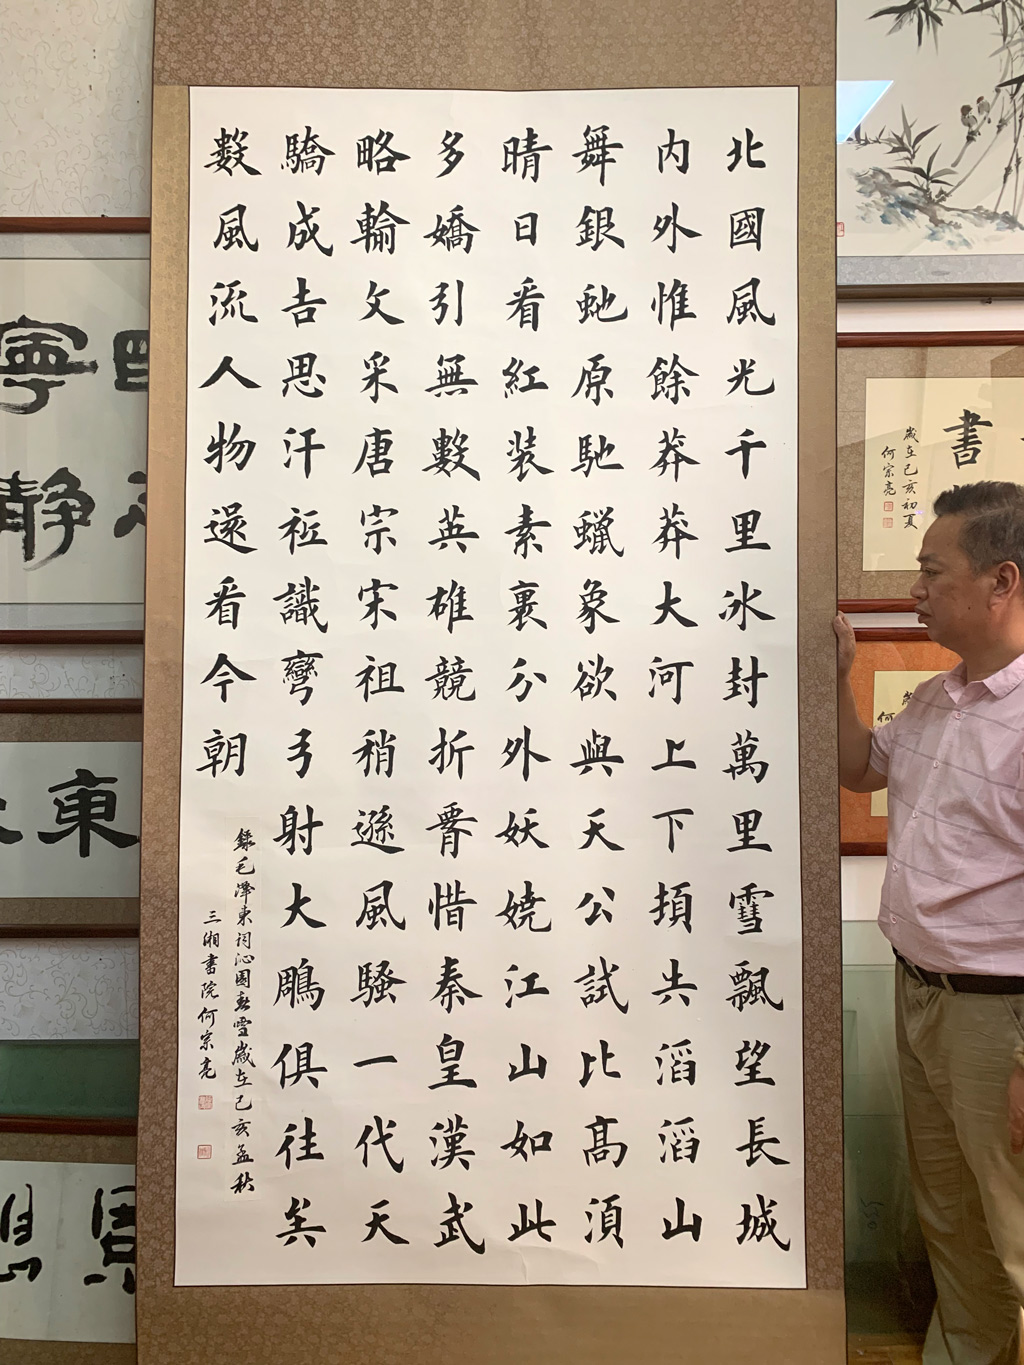 北國風光千里冰封萬里雪飄望長城
內外惟餘莽莽大河上下頓失滔滔山
舞銀虵原馳蠟象欲與天公試比高須
晴日看紅裝素裹分外妖嬈江山如此
多嬌引無數英雄競折腰惜秦皇漢武
略輸文采唐宗宋祖稍遜風騷一代天
驕成吉思汗祇識彎弓射大鵰俱往矣
數風流人物還看今朝
錄毛澤東詞沁園春雪歲在己亥孟秋
三湘書院何宗亮
書
歲在己亥初夏
何宗亮
寧静
東